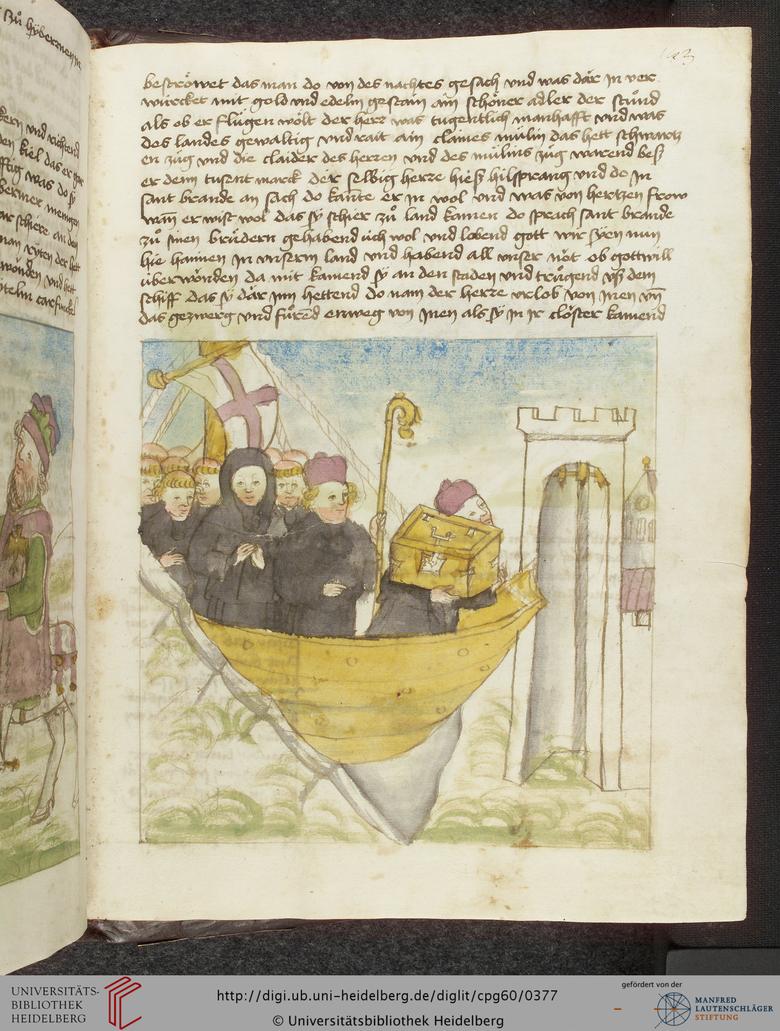 bestroͤwet das man do von des nachtes gesach vnd was där in ver
wúrcket mit gold vnd edelm gestain ain schoͤner adler der stuͦnd
als ob er fluͤgen woͤlt der herr was tugentlich manhafft vnd was
des landes gewaltig vnd rait ain claines múlin das hett schwartz
en zúg vnd die claider des herzen vnd des múlins zúg warend bess
er denn tusent marck der selbig herre hiess hilsprang vnd do in
sant brande an sach do kante er in wol vnd was von hertzen frow
wan er wist wol das sy schier zuͦ land kamen do sprach sant brande
zuͦ sinen bruͤdern gehabend úch wol vnd lobend gott wir syen nun
hie hainen in vnserm land vnd habend all vnser not ob gott will
úberwonden da mit kamend sy an den staden vnd truͦgend vss dem
schiff das sy där jnn hettend do nam der herre vrlob von jnen vnd
das gezwerg vnd fuͦrend enweg von jnen als sy in ir closter kamend
UNIVERSITÄTS-
BIBLIOTHEK
HEIDELBERG
http://digi.ub.uni-heidelberg.de/diglit/cpg60/0377
© Universitätsbibliothek Heidelberg
gefördert von der
MANFRED
LAUTENSCHLÄGER
STIFTUNG